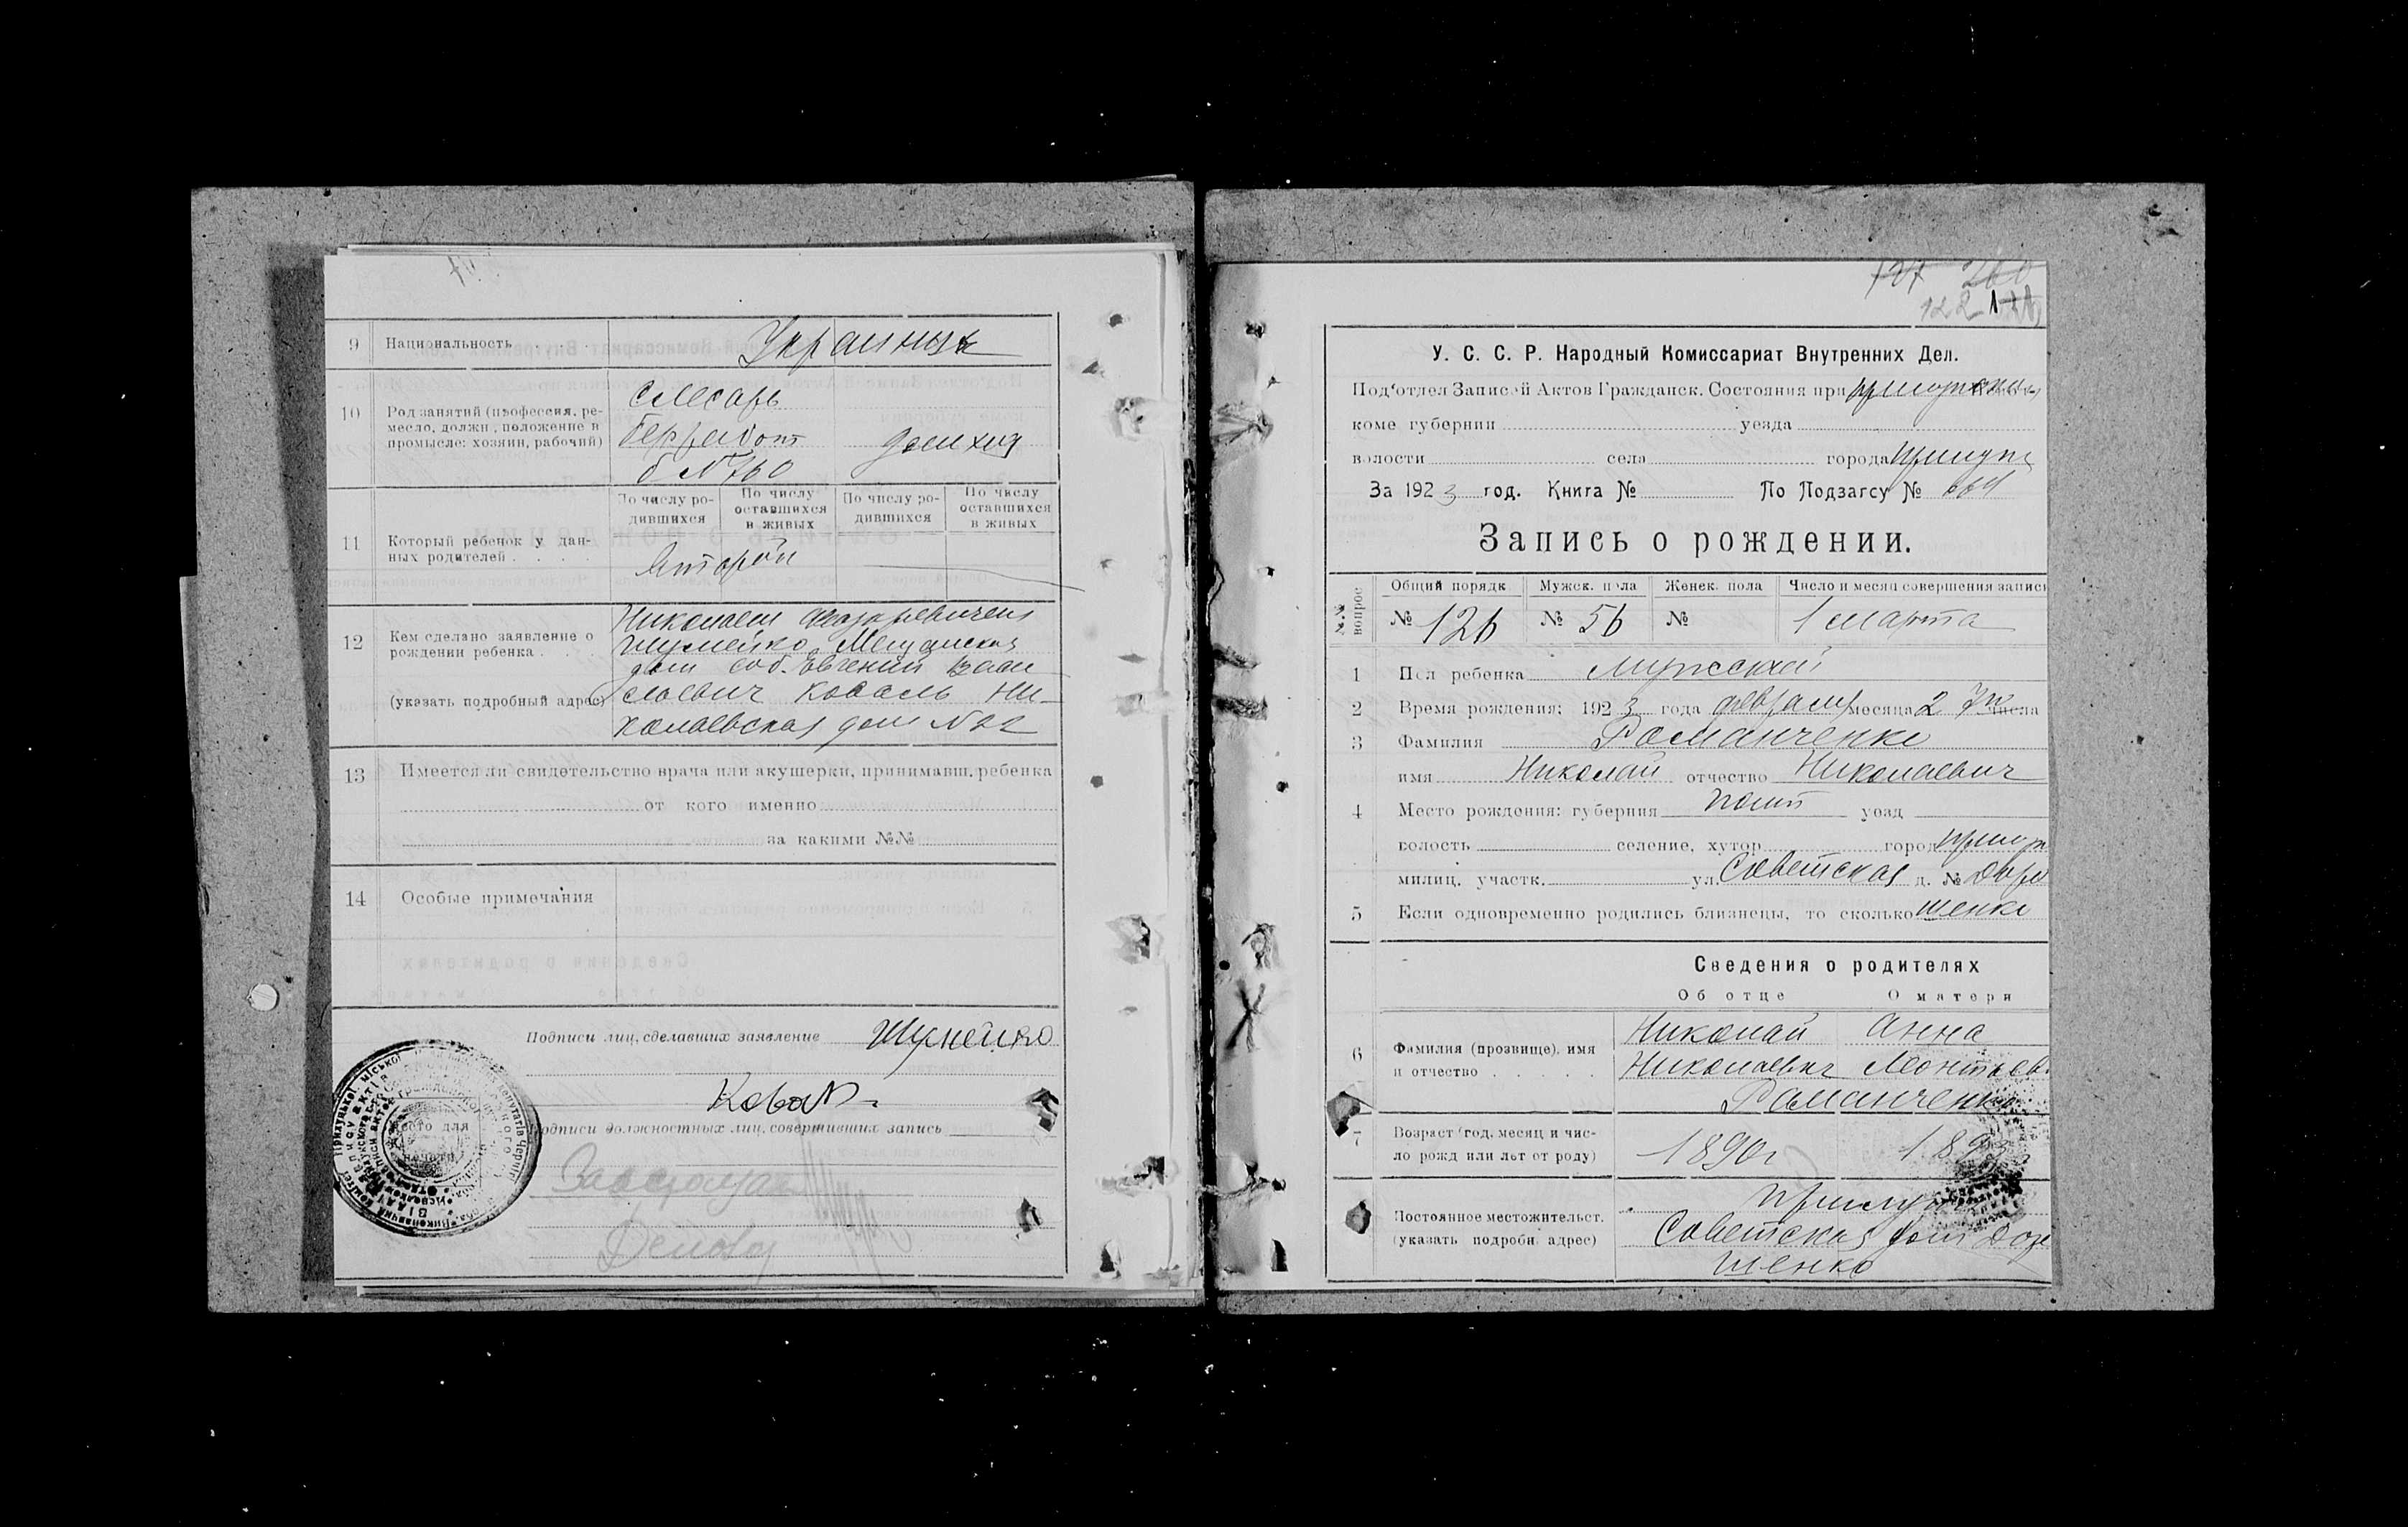 9 Национальность Украинцы
10 Род занятий (профессия, ре-
месло, должн., положение в
промысле: хозяин, рабочий)
слесарь
домхоз
11 Который ребенок у дан-
ных родителей
По числу ро-
дившихся
По числу
оставшихся
в живых
По числу ро-
дившихся
По числу
оставшихся
в живых
Второй
12 Кем сделано заявление о
рождении ребенка
(указать подробный адрес)
Николаем
Шумейко Мещанская
дом соб. Евгений Васи
льевич Коваль Ни-
колаевская дом №22
13 Имеется ли свидетельство врача или акушерки, принимавш. ребенка
от кого именно
за какими №№
14 Особые примечания
Подписи лиц, сделавших заявление Шумейко
Коваль
Подписи должностных лиц, совершивших запись
122
У. С. С. Р. Народный Комиссариат Внутренних Дел.
Под'отдел Записей Актов Гражданск. Состояния при
коме губернии уезда
волости села города Прилуки
За 1923 год. Книга № По Подзагсу №
Запись о рождении.
№№ вопрос
Общий порядк Мужск. пола Женск. пола Число и месяц совершения записи
№ 126 № 56 № 1 марта
1 Пол ребенка мужской
2 Время рождения: 1923 года февраля месяца 27 числа
3 Фамилия Романченко
имя Николай отчество Николаевич
4 Место рождения: губерния Полт уезд
волость селение, хутор город Прилуки
милиц. участк. ул. Советская д. № Доро
5 Если одновременно родились близнецы, то сколько шенко
Сведения о родителях
Об отце О матери
6 Фамилия (прозвище), имя
и отчество
Николай Анна
Николаевич Леонтьев
Романченко
7 Возраст (год, месяц и чис-
ло рожд или лет от роду)
1890г 1893
Постоянное местожительст.
(указать подробн. адрес)
Прилуки
Советская дом Доро
шенко